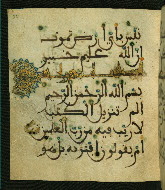 نفس بأي أرض تموت
إن الله عليم خبير
بسم الله الرحمن الرحيم
الم تنزيل الكتب
لا ريب فيه من رب العلمين
أم يقولون افتريه بل هو